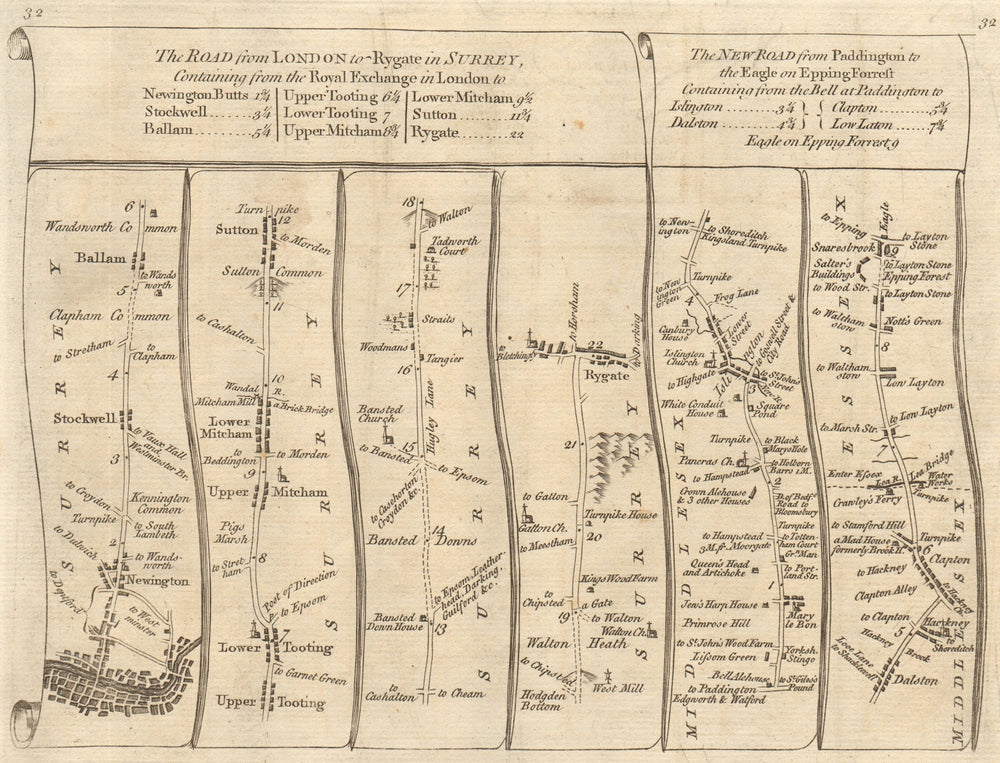 32
32
The ROAD from LONDON to Rygate in SURREY,
Containing from the Royal Exchange in London to
Newington Butts 1¾
Stockwell 3½
Ballam 5¼
Upper Tooting 6¼
Lower Tooting 7
Upper Mitcham 8¾
Lower Mitcham 9½
Sutton 11¾
Rygate 22
The NEW ROAD from Paddington to
the Eagle on Epping Forrest
Containing from the Bell at Paddington to
Islington 3¼
Dalston 4¾
Clapton 5¾
Low Laton 7¾
Eagle on Epping Forrest 9
6
Wandsworth Common
Ballam
to Wands
worth
5
Clapham Common
to Stretham
to
Clapham
4
Stockwell
to Vaux Hall
and
Westminster Br.
3
to Croydon
Kennington
Common
Turnpike
to South
Lambeth
2
to Dulwich
to Wands-
worth
Newington
to Deptford
to West
minster
SURREY
Turnpike
12
Sutton
to Morden
Sutton Common
11
to Cashalton
10
Wandal R.
Mitcham Mill
a Brick Bridge
Lower
Mitcham
to
Beddington
to Morden
9
Upper Mitcham
Pigs
Marsh
8
to Stret
ham
Post of Direction
to Epsom
7
Lower Tooting
to Garnet Green
Upper Tooting
SURREY
18
to Walton
Tadworth
Court
17
Straits
Woodmans
Tangier
16
Hugley Lane
Bansted
Church
15
to Bansted
to Epsom
to Cashorton
Croydon &c.
14
Bansted Downs
to Epsom, Leather-
head, Darking,
Guilford &c.
Bansted
Down House
13
to
Cashalton
to Cheam
SURREY
to Horsham
to Darking
to
Bletchingly
22
Rygate
21
to Gatton
Gatton Ch.
Turnpike House
to Meestham
20
Kings Wood Farm
to
Chipsted
a Gate
19
to Walton
Walton Ch.
Walton Heath
to Chipsted
West Mill
Hodgden
Bottom
SURREY
to New-
ington
to Shoreditch
Kingsland Turnpike
Turnpike
to New
ington
Green
4
Frog Lane
Canbury
House
Lower
Street
Islington
Church
Islington
to Goswell Street &
Ely Road
to Highgate
to St. John's
Street
3
New R.
White Conduit
House
Square
Pond
Turnpike
to Black
Marys Hole
Pancras Ch.
to Holborn
Barrs 1 M.
to Hampstead
2
Crown Alehouse
& 3 other Houses
D. of Bedfs.
Road to
Bloomsbury
Turnpike
to Hampstead
3 M. fm. Moorgate
to Totten-
ham Court
Gt. Man
Queen's Head
and Artichoke
to Port-
land Str.
1
Jew's Harp House
Mary
le Bon
Primrose Hill
to St. John's Wood Farm
Lisson Green
Yorksh.
Stingo
Bell Alehouse
to St. Giles's
Pound
to Paddington
Edgworth & Watford
MIDDLESEX
to Epping
Eagle
to Layton
Stone
Snaresbrook
9
Salter's
Buildings
to Layton Stone
Epping Forest
to Wood Str.
to Layton Stone
to Waltham
stow
Nott's Green
8
to Waltham
stow
Low Layton
to Marsh Str.
to Low Layton
7
Enter Essex
Lea R.
Lea Bridge
Water
Works
Crawley's Ferry
Turnpike
to Stamford Hill
a Mad House
formerly Brook H.
Turnpike
6
Clapton
to Hackney
Clapton Alley
to Hackney Ch.
to Clapton
Hackney
5
to
Shoreditch
Hackney Brook
Love Lane
to Shacklewell
Dalston
ESSEX
MIDDLESEX